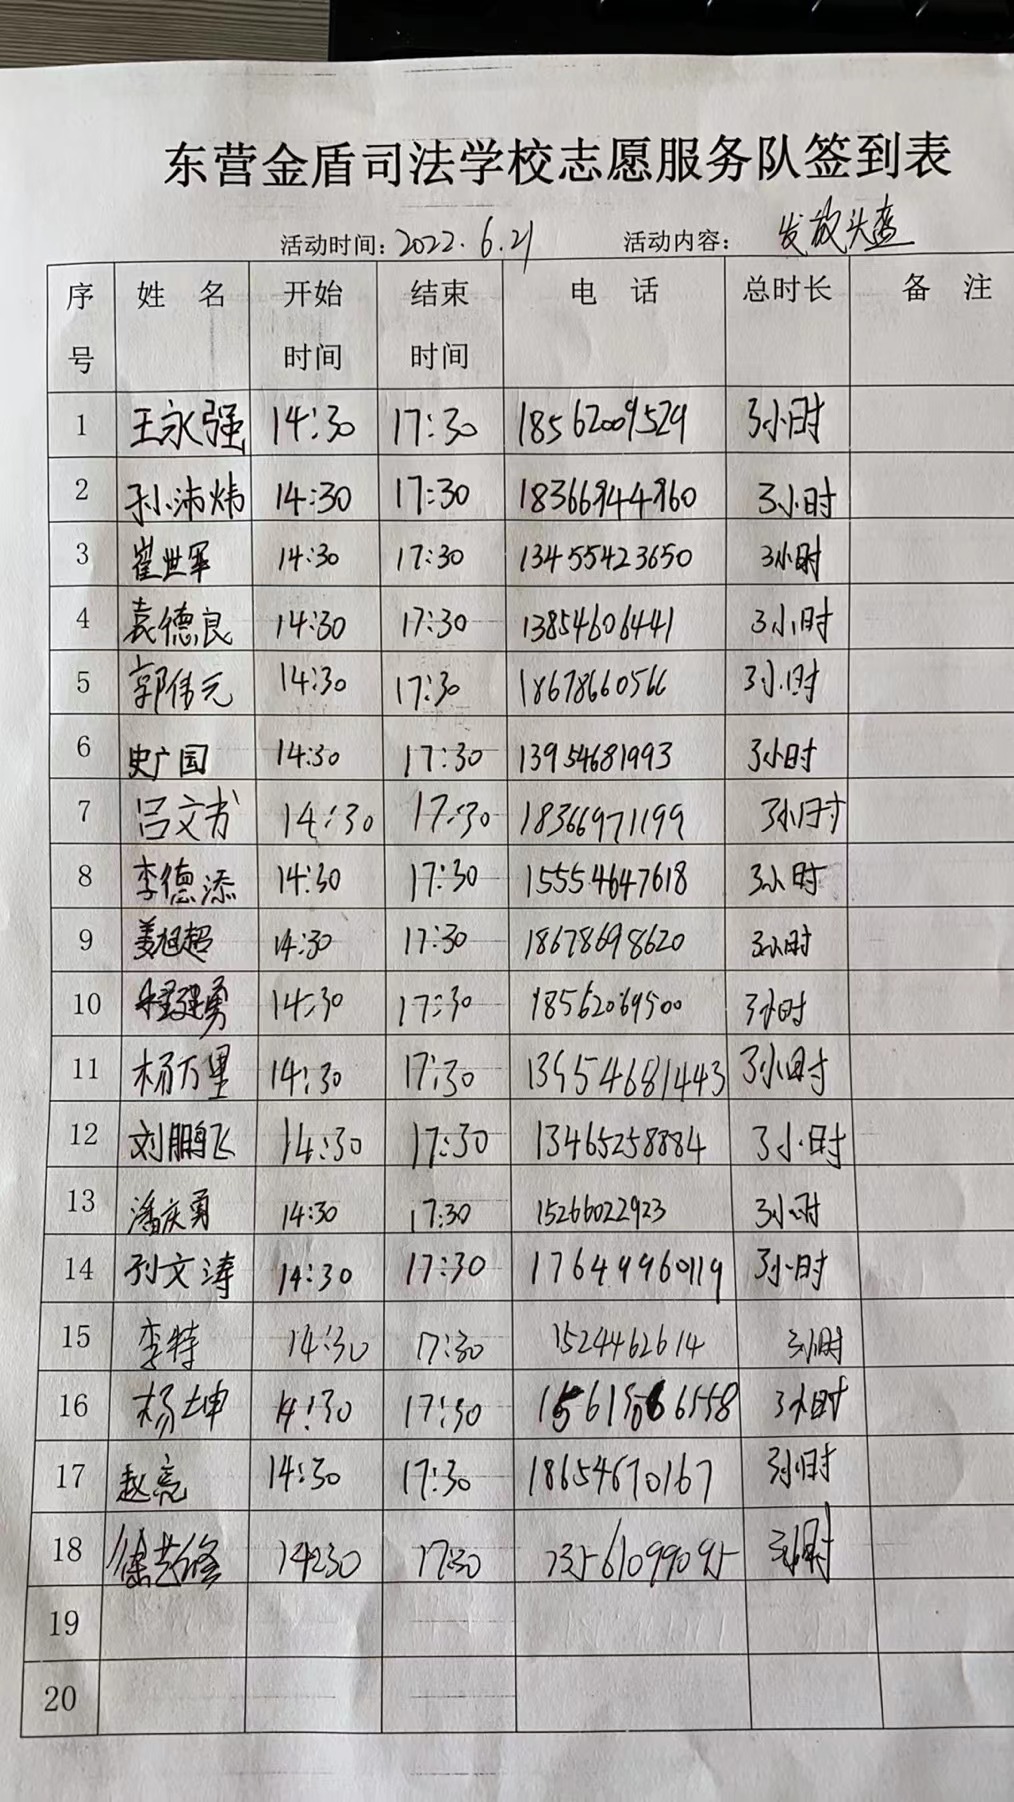 东营金盾司法学校志愿服务队签到表
活动时间：2022.6.21 活动内容：发放头盔
序号 姓名 开始时间 结束时间 电话 总时长 备注
1 王永强 14:30 17:30 18562009529 3小时
2 孙沛炜 14:30 17:30 18366944960 3小时
3 崔世军 14:30 17:30 13455423650 3小时
4 袁德良 14:30 17:30 13854606441 3小时
5 郭伟元 14:30 17:30 18678660566 3小时
6 史广国 14:30 17:30 13954681993 3小时
7 吕文书 14:30 17:30 18366971199 3小时
8 李德添 14:30 17:30 15554647618 3小时
9 姜旭超 14:30 17:30 18678698620 3小时
10 14:30 17:30 18562069500 3小时
11 杨万里 14:30 17:30 13954681443 3小时
12 刘鹏飞 14:30 17:30 13465258884 3小时
13 潘庆勇 14:30 17:30 15266022923 3小时
14 孙文涛 14:30 17:30 17649960119 3小时
15 李特 14:30 17:30 1524462614 3小时
16 杨坤 14:30 17:30 3小时
17 赵亮 14:30 17:30 18654670167 3小时
18 14:30 17:30 13561099095 3小时
19
20